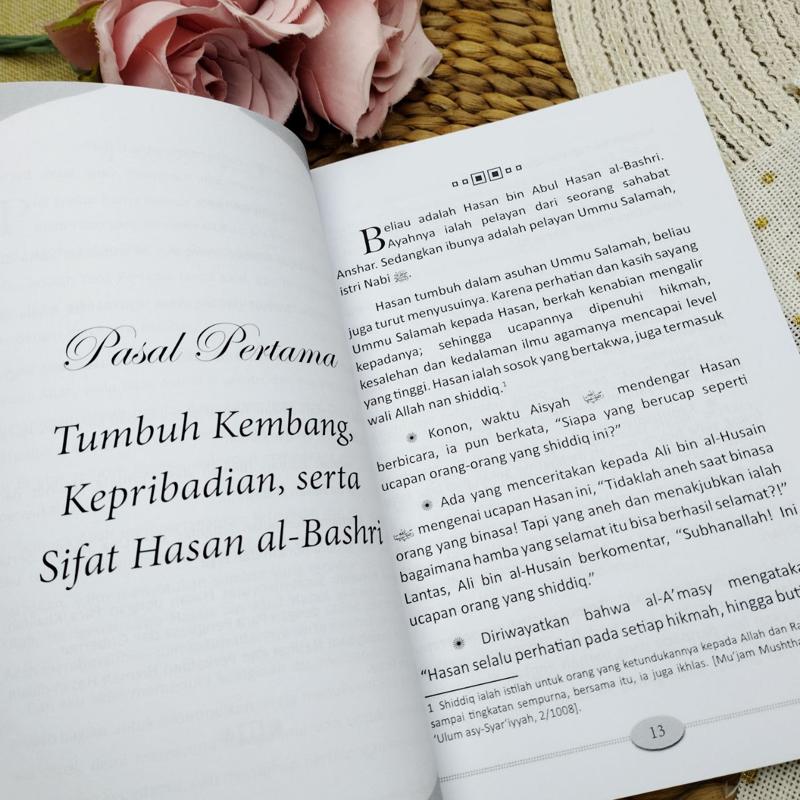 Pasal Pertama
Tumbuh Kembang,
Kepribadian, serta
Sifat Hasan al-Bashri
Beliau adalah Hasan bin Abul Hasan al-Bashri.
Ayahnya ialah pelayan dari seorang sahabat
Anshar. Sedangkan ibunya adalah pelayan Ummu Salamah,
istri Nabi ﷺ.
Hasan tumbuh dalam asuhan Ummu Salamah, beliau
juga turut menyusuinya. Karena perhatian dan kasih sayang
Ummu Salamah kepada Hasan, berkah kenabian mengalir
kepadanya; sehingga ucapannya dipenuhi hikmah,
kesalehan dan kedalaman ilmu agamanya mencapai level
yang tinggi. Hasan ialah sosok yang bertakwa, juga termasuk
wali Allah nan shiddiq.¹
Konon, waktu Aisyah mendengar Hasan
berbicara, ia pun berkata, “Siapa yang berucap seperti
ucapan orang-orang yang shiddiq ini?”
Ada yang menceritakan kepada Ali bin al-Husain
mengenai ucapan Hasan ini, “Tidaklah aneh saat binasa
orang yang binasa! Tapi yang aneh dan menakjubkan ialah
bagaimana hamba yang selamat itu bisa berhasil selamat?!”
Lantas, Ali bin al-Husain berkomentar, “Subhanallah! Ini
ucapan orang yang shiddiq.”
Diriwayatkan bahwa al-A’masy
“Hasan selalu perhatian pada setiap hikmah, hingga
1 Shiddiq ialah istilah untuk orang yang ketundukannya kepada Allah dan
sampai tingkatan sempurna, bersama itu, ia juga ikhlas. [Mu’jam
‘Ulum asy-Syar’iyyah, 2/1008].
13